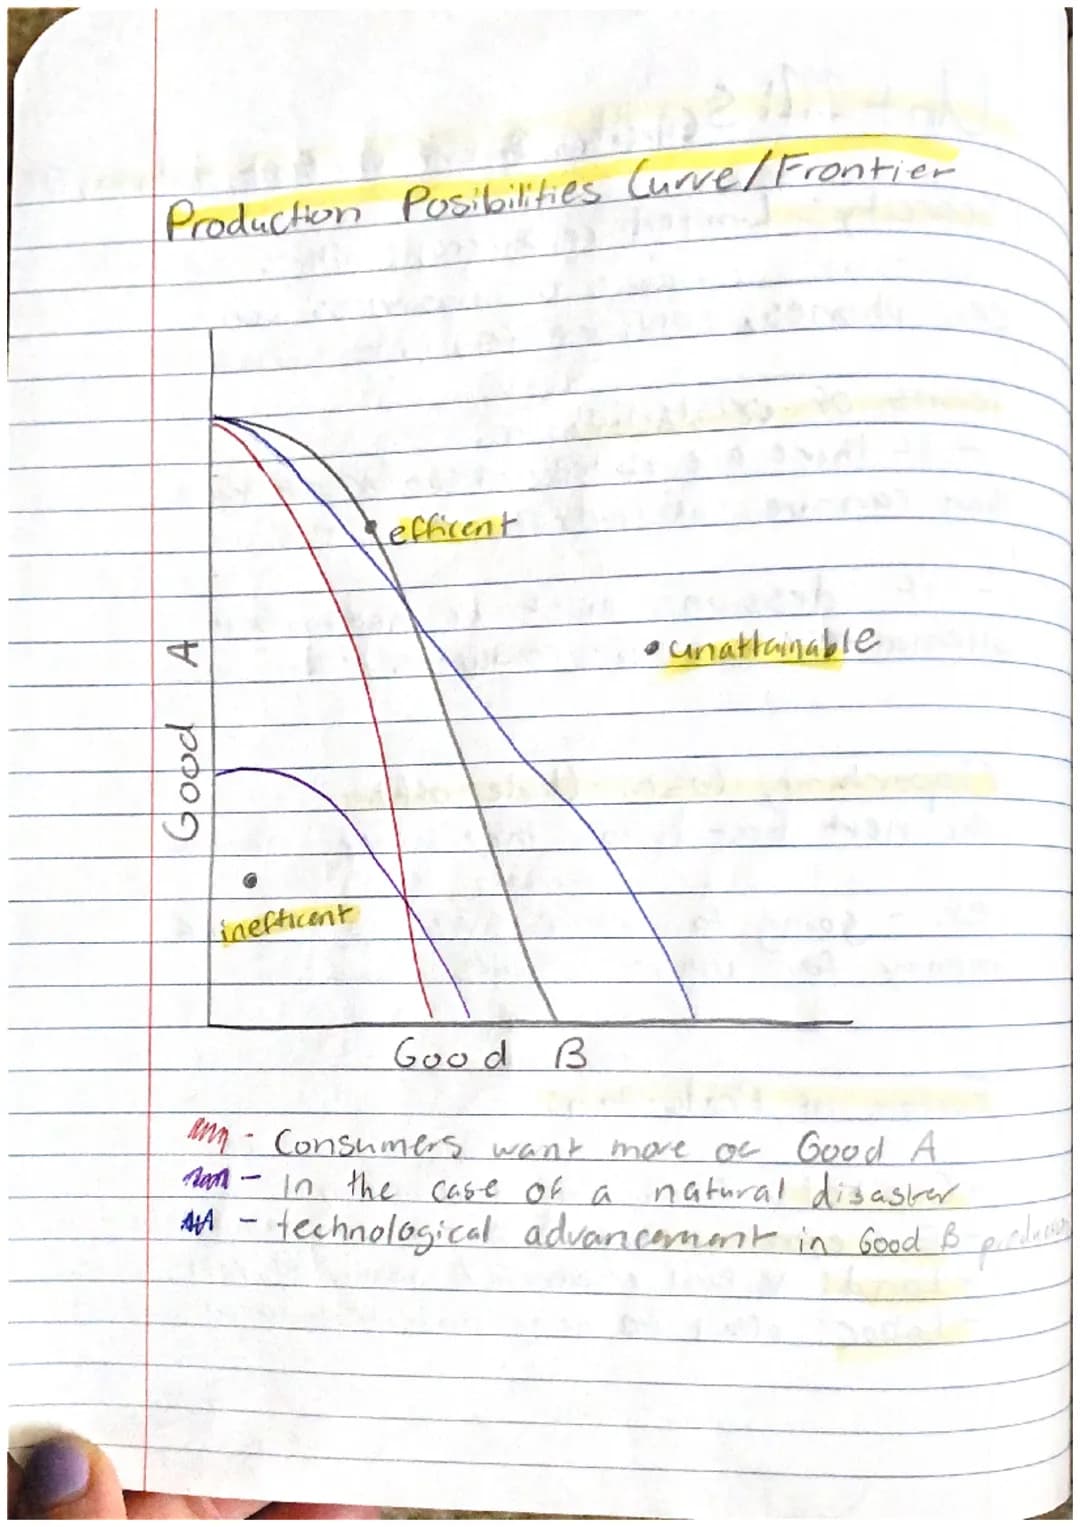 Production Posibilities Curve/Frontier
efficent
unattainable
Good A
inefficent
Good B
- Consumers want more of Good A
- in the case of a natural disaster
- technological advancement in Good B production